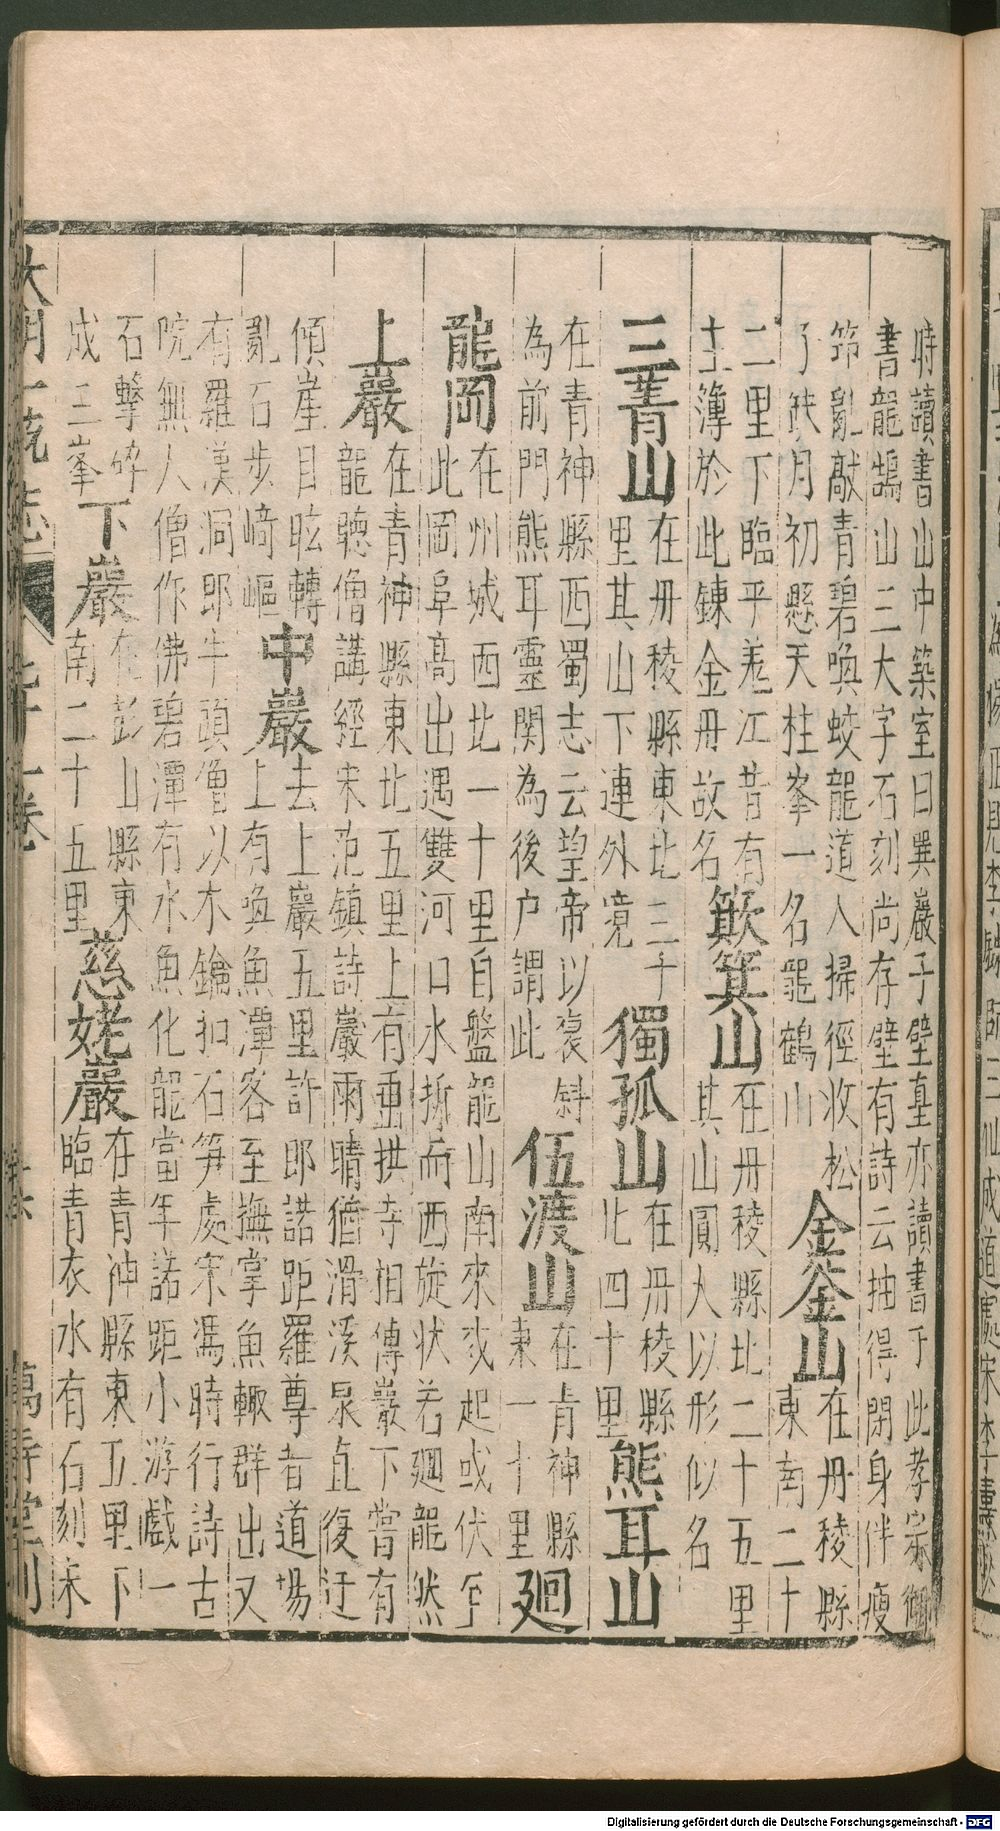 時讀書山中築室曰巽巖子壁堊亦讀書于此孝宗御
書龍鵠山三大字石刻尚存壁有詩云抽得閑身伴瘦
筇亂敲青碧喚蛟龍道人掃徑收松
子缺月初懸天柱峯一名龍鶴山
金釜山
在丹稜縣
東南二十
二里下臨平羌江昔有
主簿於此鍊金丹故名
歕箕山
在丹稜縣北二十五里
其山圓人以形似名
三菁山
在丹稜縣東北三十
里其山下連外境
獨孤山
在丹棱縣
北四十里
熊耳山
在青神縣西蜀志云望帝以褒斜
為前門熊耳靈関為後户謂此
伍渡山
在青神縣
東一十里
廻
龍岡
在州城西北一十里自盤龍山南來或起或伏至
此岡阜高出遇雙河口水折而西旋状若廻龍然
上巖
在青神縣東北五里上有重拱寺相傳巖下嘗有
龍聽僧講經宋范鎮詩巖雨晴猶滑溪泉直復迂
傾崖目眩轉
亂石步崎嶇
中巖
去上巖五里許即諾距羅尊者道場
上有喚魚潭客至撫掌魚輙群出又
有羅漢洞即牛頭僧以木鑰扣石笋處宋馮時行詩古
院無人僧作佛碧潭有水魚化龍當年諾距小游戲一
石擊碎
成三峯
下巖
在彭山縣東
南二十五里
慈姥巖
在青神縣東五里下
臨青衣水有石刻宋
大明一統志
卷
萬壽堂刊
Digitalisierung gefördert durch die Deutsche Forschungsgemeinschaft - DFG